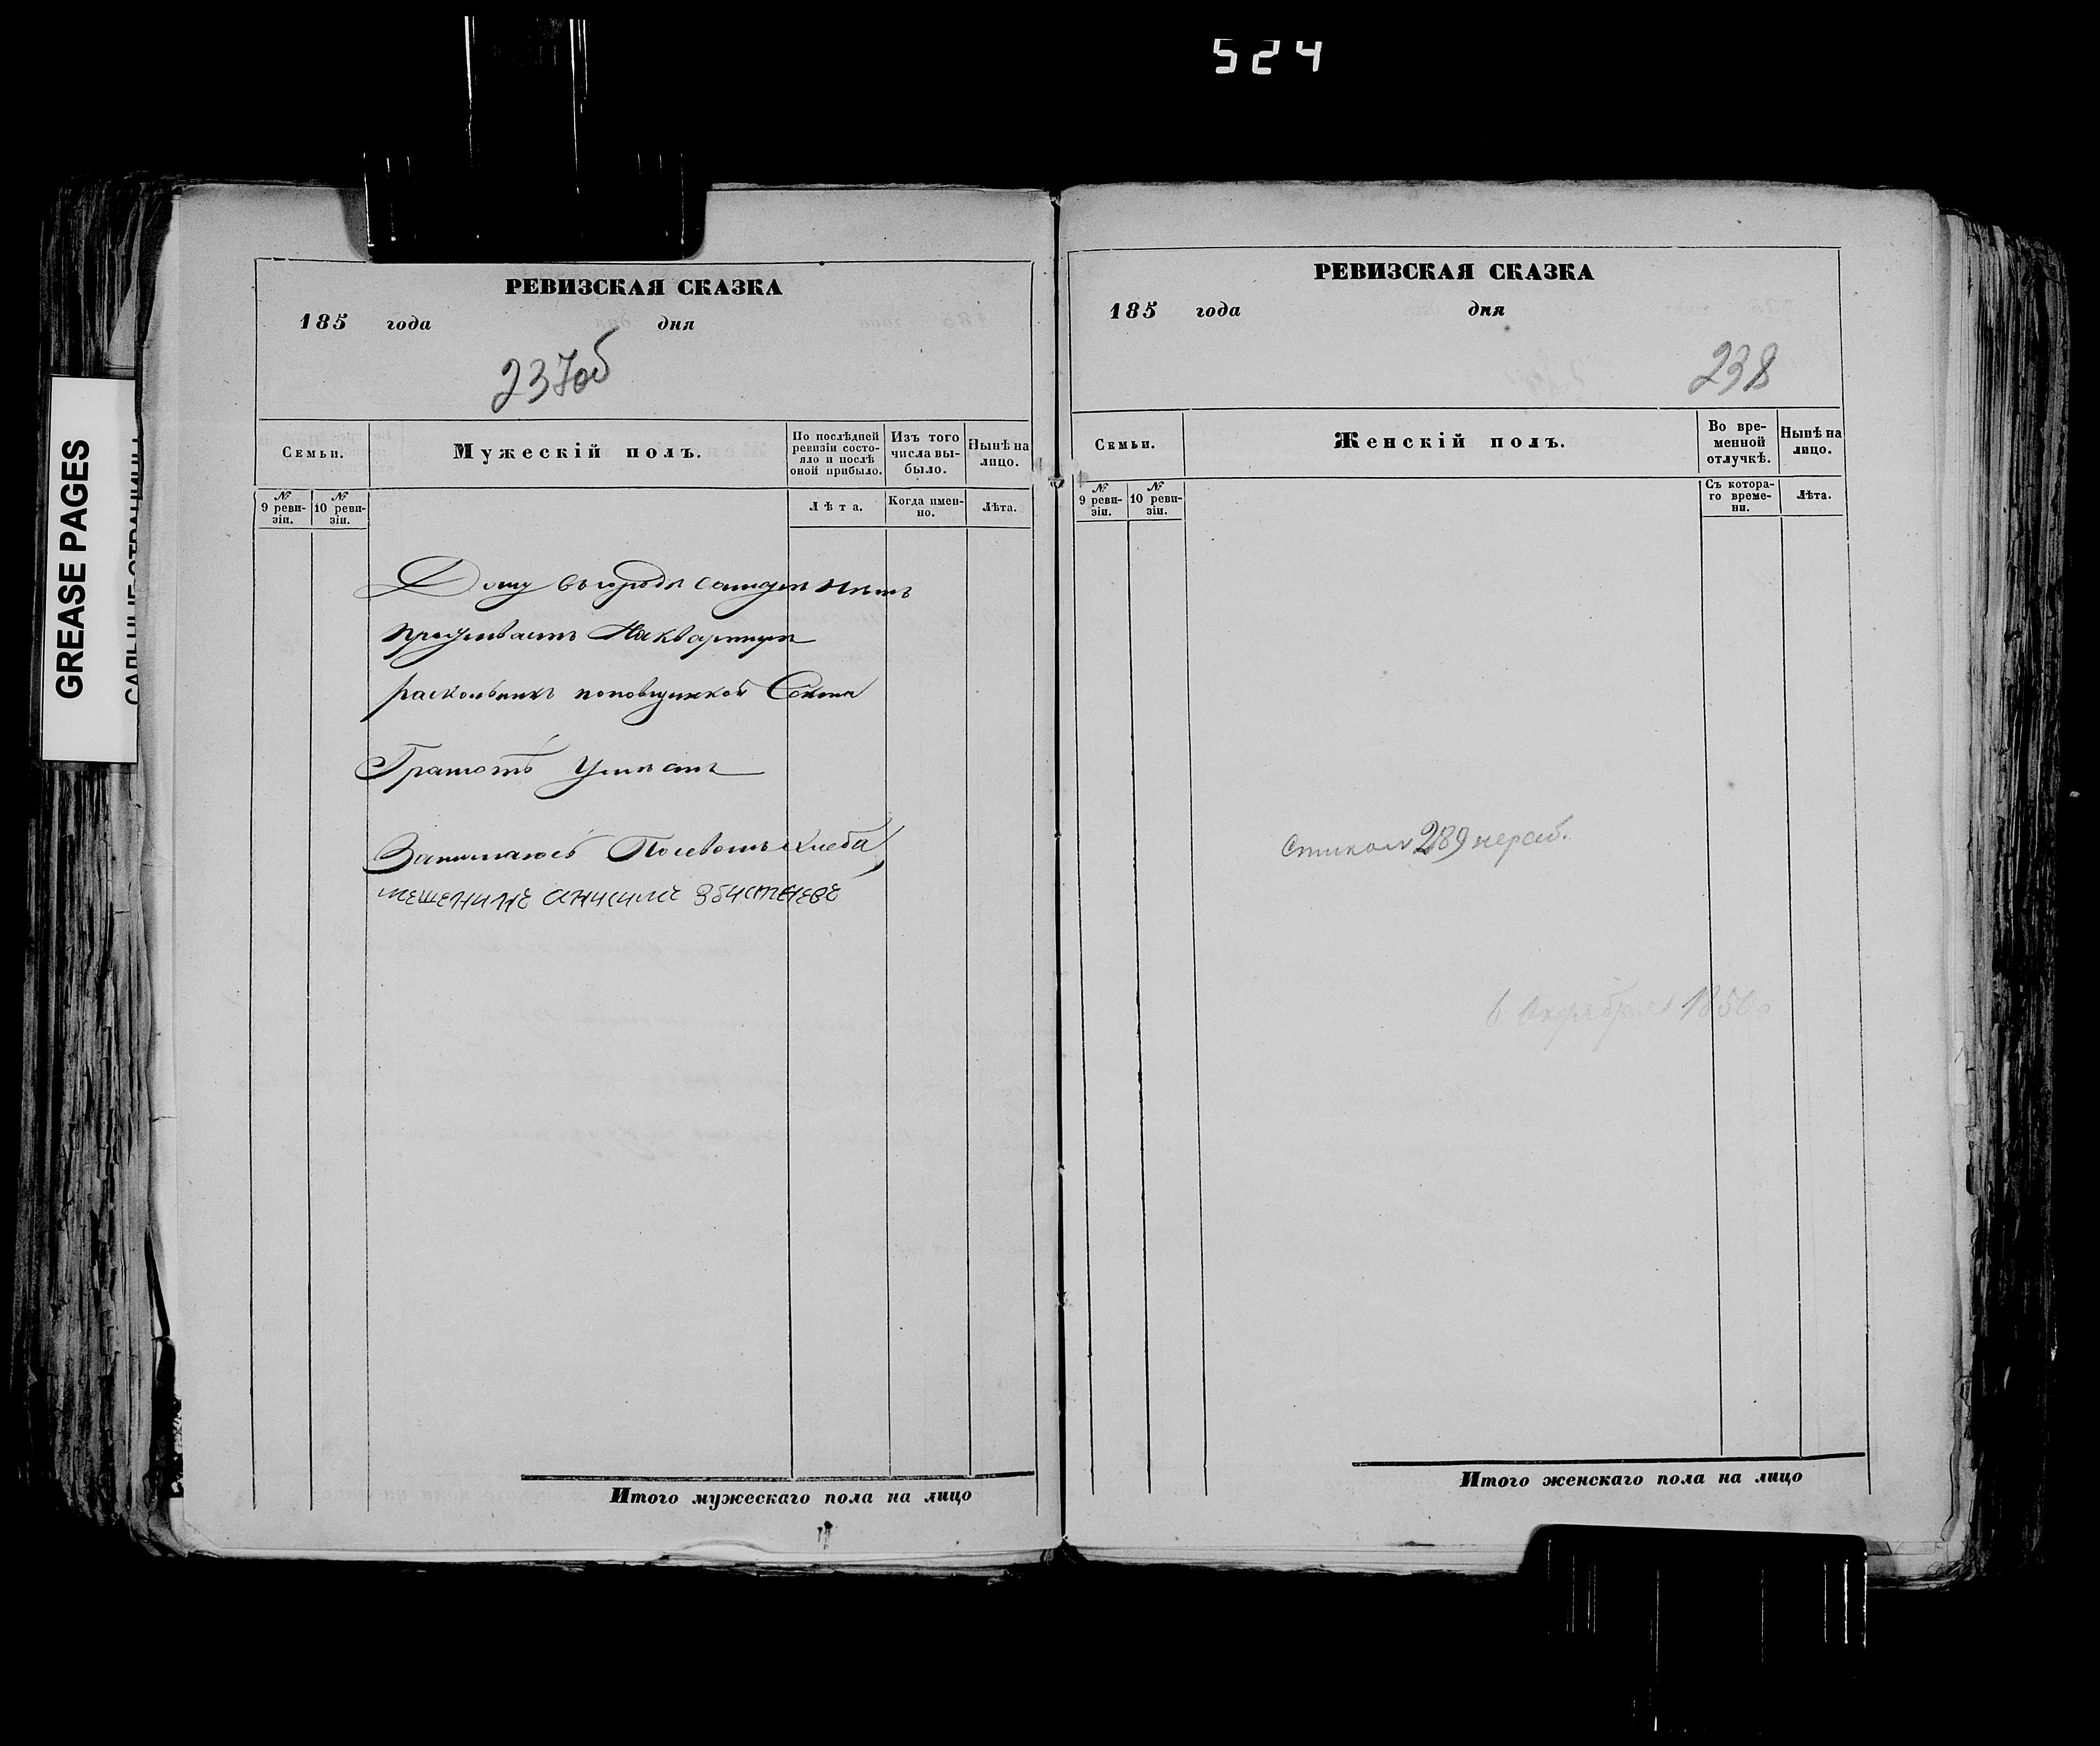 524
GREASE PAGES
РЕВИЗСКАЯ СКАЗКА
185 года дня
237об
Семьи.
Мужескій полъ.
По послѣдней ревизіи состояло и послѣ оной прибыло.
Изъ того числа выбыло.
Нынѣ на лицо.
№ 9 ревизіи.
№ 10 ревизіи.
Лѣта.
Когда именно.
Лѣта.
Дому въ городѣ нѣтъ
проживаетъ на квартирѣ
раскольникъ поповщинской Секты
Грамотѣ
Занимаюсь Посевомъ хлеба
мещенине анисиме
Итого мужескаго пола на лицо
РЕВИЗСКАЯ СКАЗКА
185 года дня
238
Семьи.
Женскій полъ.
Во временной отлучкѣ.
Нынѣ на лицо.
№ 9 ревизіи.
№ 10 ревизіи.
Съ котораго времени.
Лѣта.
289
6 Октября 1850
Итого женскаго пола на лицо